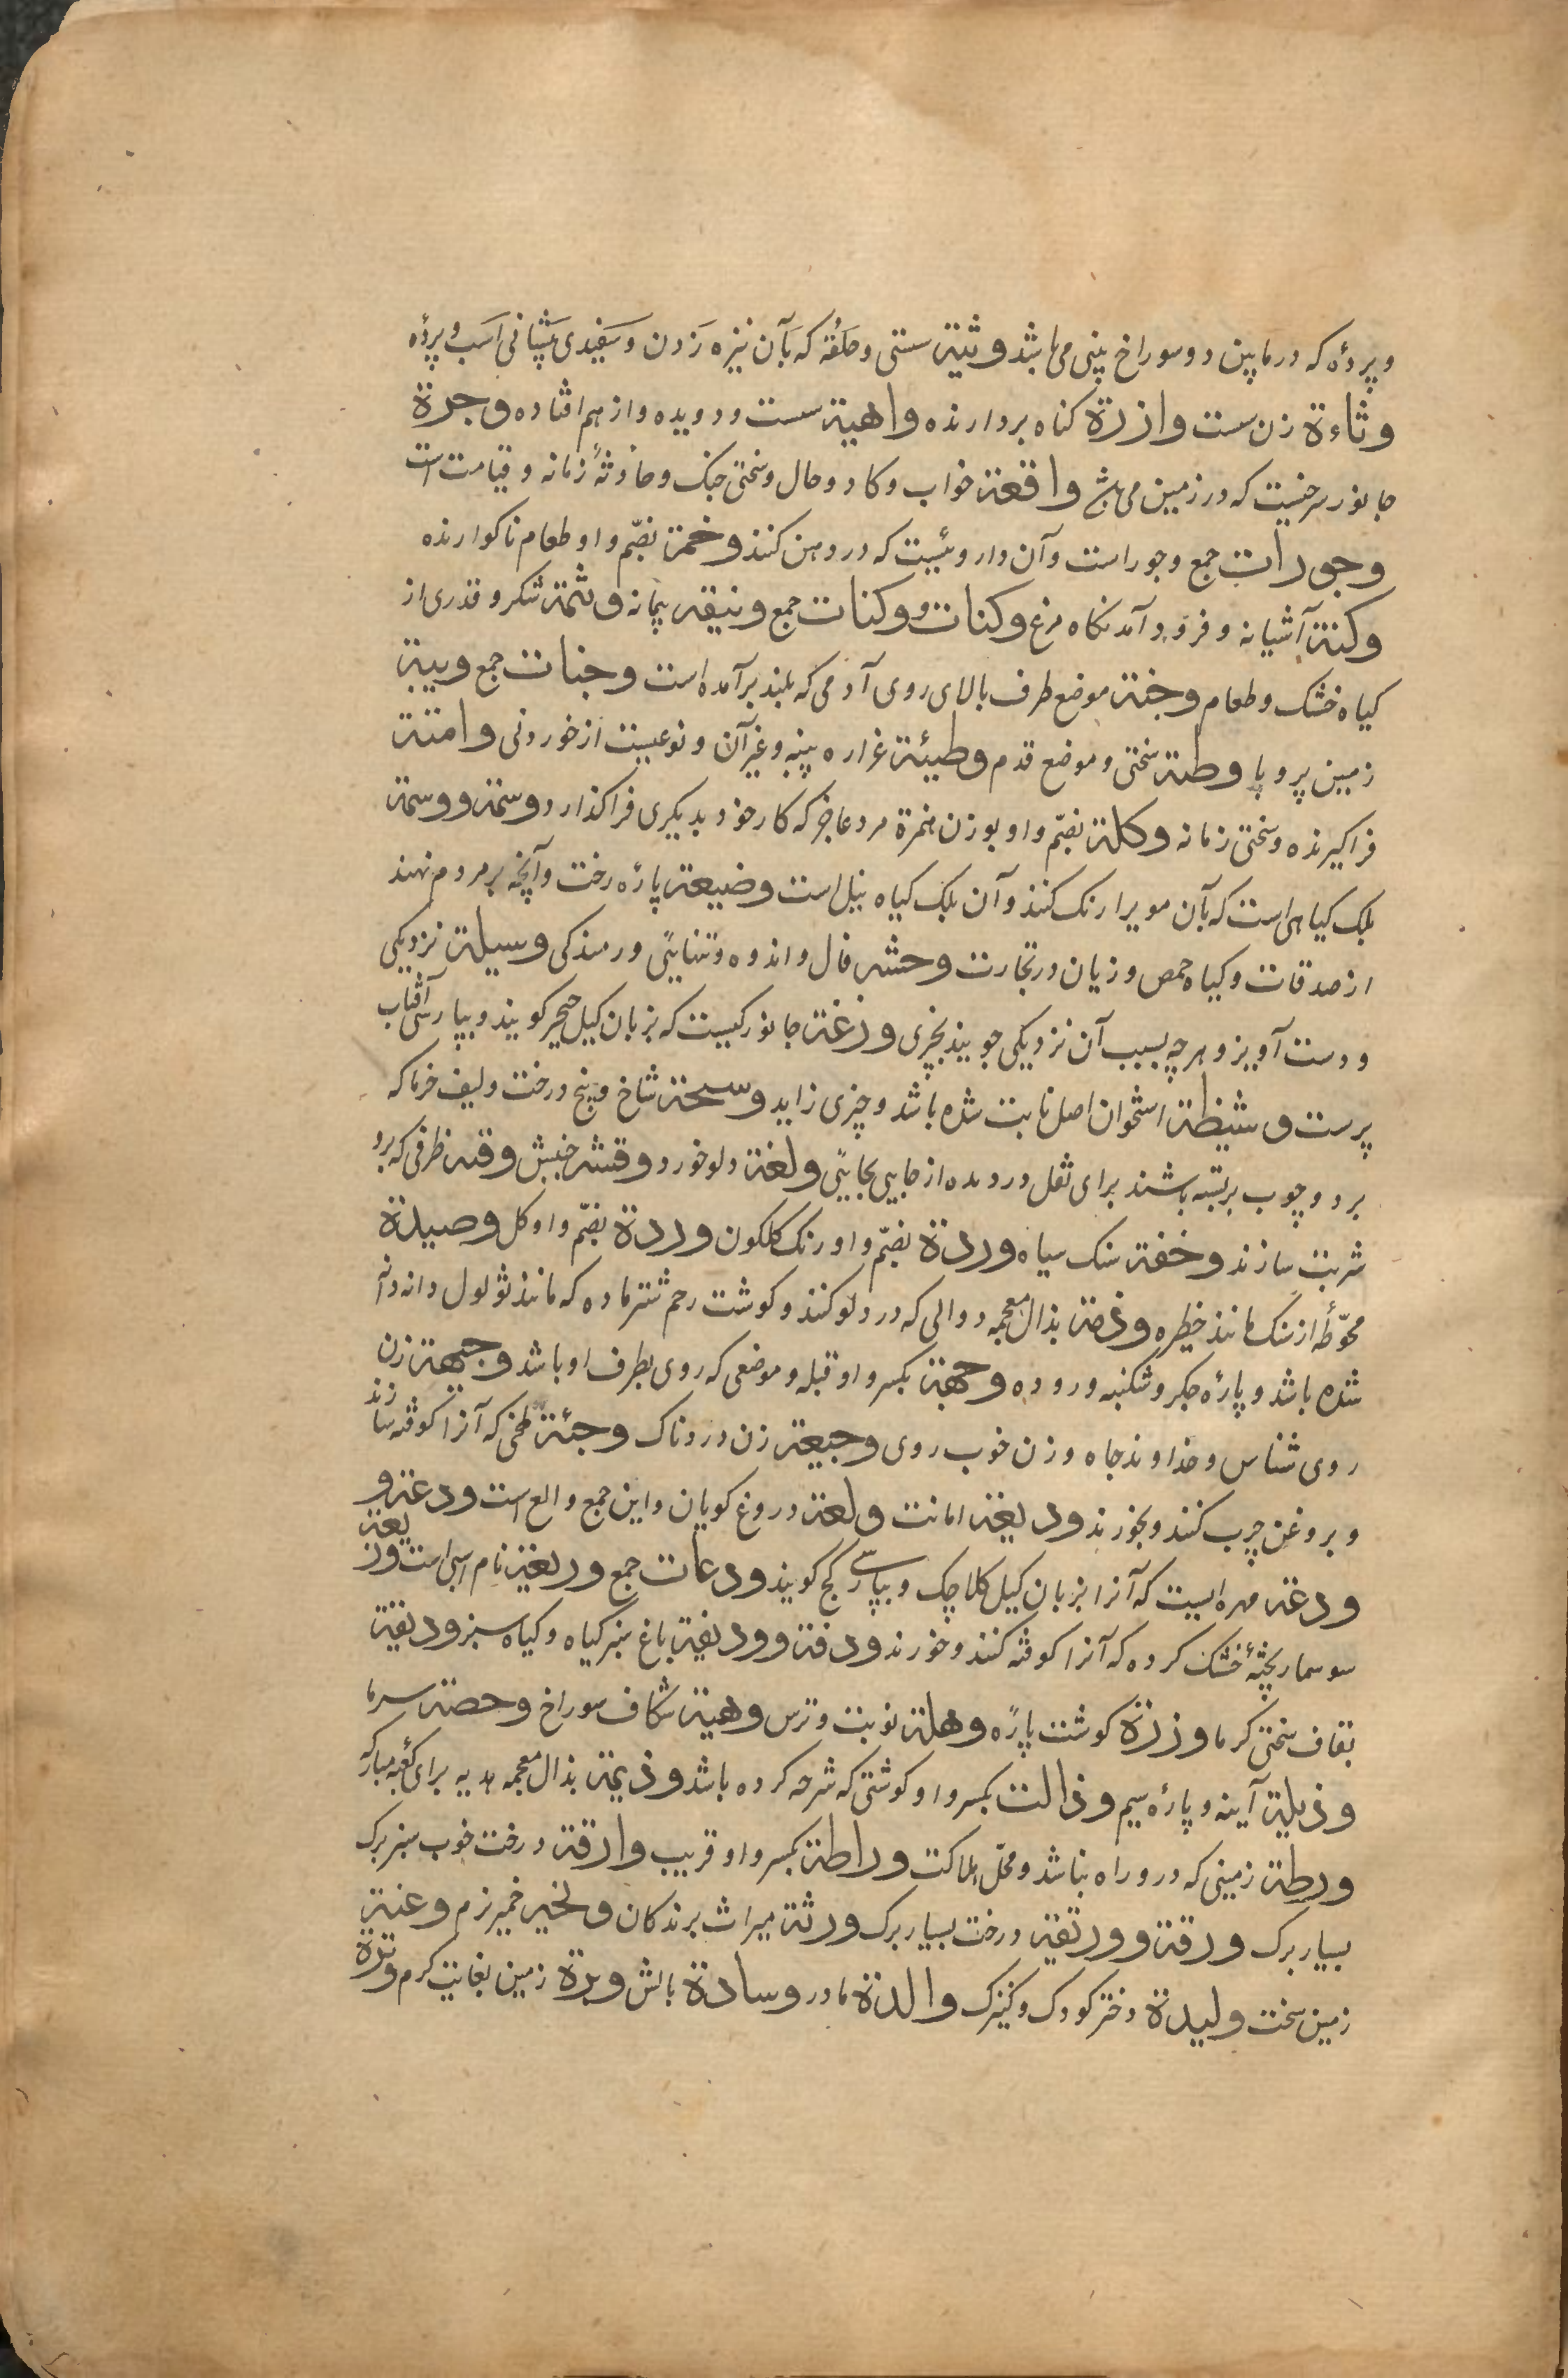 و پردهٔ که در مابین دو سوراخ بینی می باشد وتیة سستی و حلقه که بآن نیزه زدن و سفیدی پیشانی اسب و پردهٔ
وثاءة زن سست وازرة کناه بردارنده واهیة سست و دویده و از هم افتاده وحرة
جانور سرخیست که در زمین می باشد واقعة خواب و کار و حال و سختی جنک و حادثهٔ زمانه و قیامت است
وجورات جمع وجور است و آن داروئیست که در دهن کنند وخمة بضمّ واو طعام ناکوارنده
وکنة آشیانه و فرود آمدنکاه مرغ وکنات و وکنات جمع ونیقه پیمانه وثمة شکر و قدری از
کیاه خشک و طعام وجنة موضع طرف بالای روی آدمی که بلند برآمده است وجنات جمع وبیة
زمین پر وبا وطئة سختی و موضع قدم وطیئة غراره پنبه و غیر آن و نوعیست از خوردنی وامتة
فراکیرنده و سختی زمانه وکلة بضمّ واو بوزن همزة مرد عاجز که کار خود بدیکری فراکذارد وسمة ووسمة
بلک کیاهی است که بآن مویرا رنک کنند و آن بلک کیاه نیل است وضیعة پارهٔ رخت و آنچه بر مردم نهند
از صدقات و کیاه حمص و زیان در تجارت وحشة فال و اندوه و تنهایی و رمندکی وسیلة نزدیکی
و دست آویز و هر چه بسبب آن نزدیکی جویند بچیزی وزغة جانورکیست که بزبان کیل حیچر کویند و بپارسی آفتاب
پرست وشیظة استخوان اصل ثابت شده باشد و چیزی زاید وسحة شاخ و بیخ درخت و لیف خرما که
بر دو چوب بربسته باشند برای نقل درو ده از جایی بجایی ولغة دلو خورد وقشة جنبش وقه ظرفی که برو
شربت سازند وخفة سنک سیاه وردة بضمّ واو رنک کلکون وردة بضمّ واو کل وصیدة
محوّطهٔ از سنک مانند خطیره وذمة بذال معجمه دوالی که در دلو کنند و کوشت رحم شتر ماده که مانند ثؤلول دانه دانه
شده باشد و پارهٔ جکر و شکنبه و روده وجهة بکسر واو قبله و موضعی که روی بطرف او باشد وجیهة زن
روی شناس و خداوند جاه و زن خوب روی وجیعة زن دردناک وجئة طخی که آنرا کوفته سازند
و بروغن چرب کنند و بخورند ودیعة امانت ولعة دروغ کویان و این جمع والع است ودعة و
ودعة مهره ایست که آنرا بزبان کیل کلاچک و بپارسی کج کویند ودعات جمع وریعة نام اسبی است وزیعة
سوسمار پختهٔ خشک کرده که آنرا کوفته کنند و خورند ودفة وودیفة باغ سبز کیاه و کیاه سبز ودیقة
بقاف سختی کرما وزرة کوشت پاره وهلة نوبت و ترس وهیة شکاف سوراخ وحصة سرما
وذیلة آینه و پارهٔ سیم وذالت بکسر واو کوشتی که شرحه کرده باشد وذیمة بذال معجمه هدیه برای کعبه مبارکه
ورطة زمینی که در و راه نباشد و محلّ هلاکت وراطة بکسر واو فریب وارقة درخت خوب سبز برک
بسیار برک ورقة وورقیة درخت بسیار برک ورثة میراث برندکان وخیر خمیر نرم وعنة
زمین سخت ولیدة دختر کودک و کنیزک والدة مادر وسادة بالش وبرة زمین بغایت کرم وترة